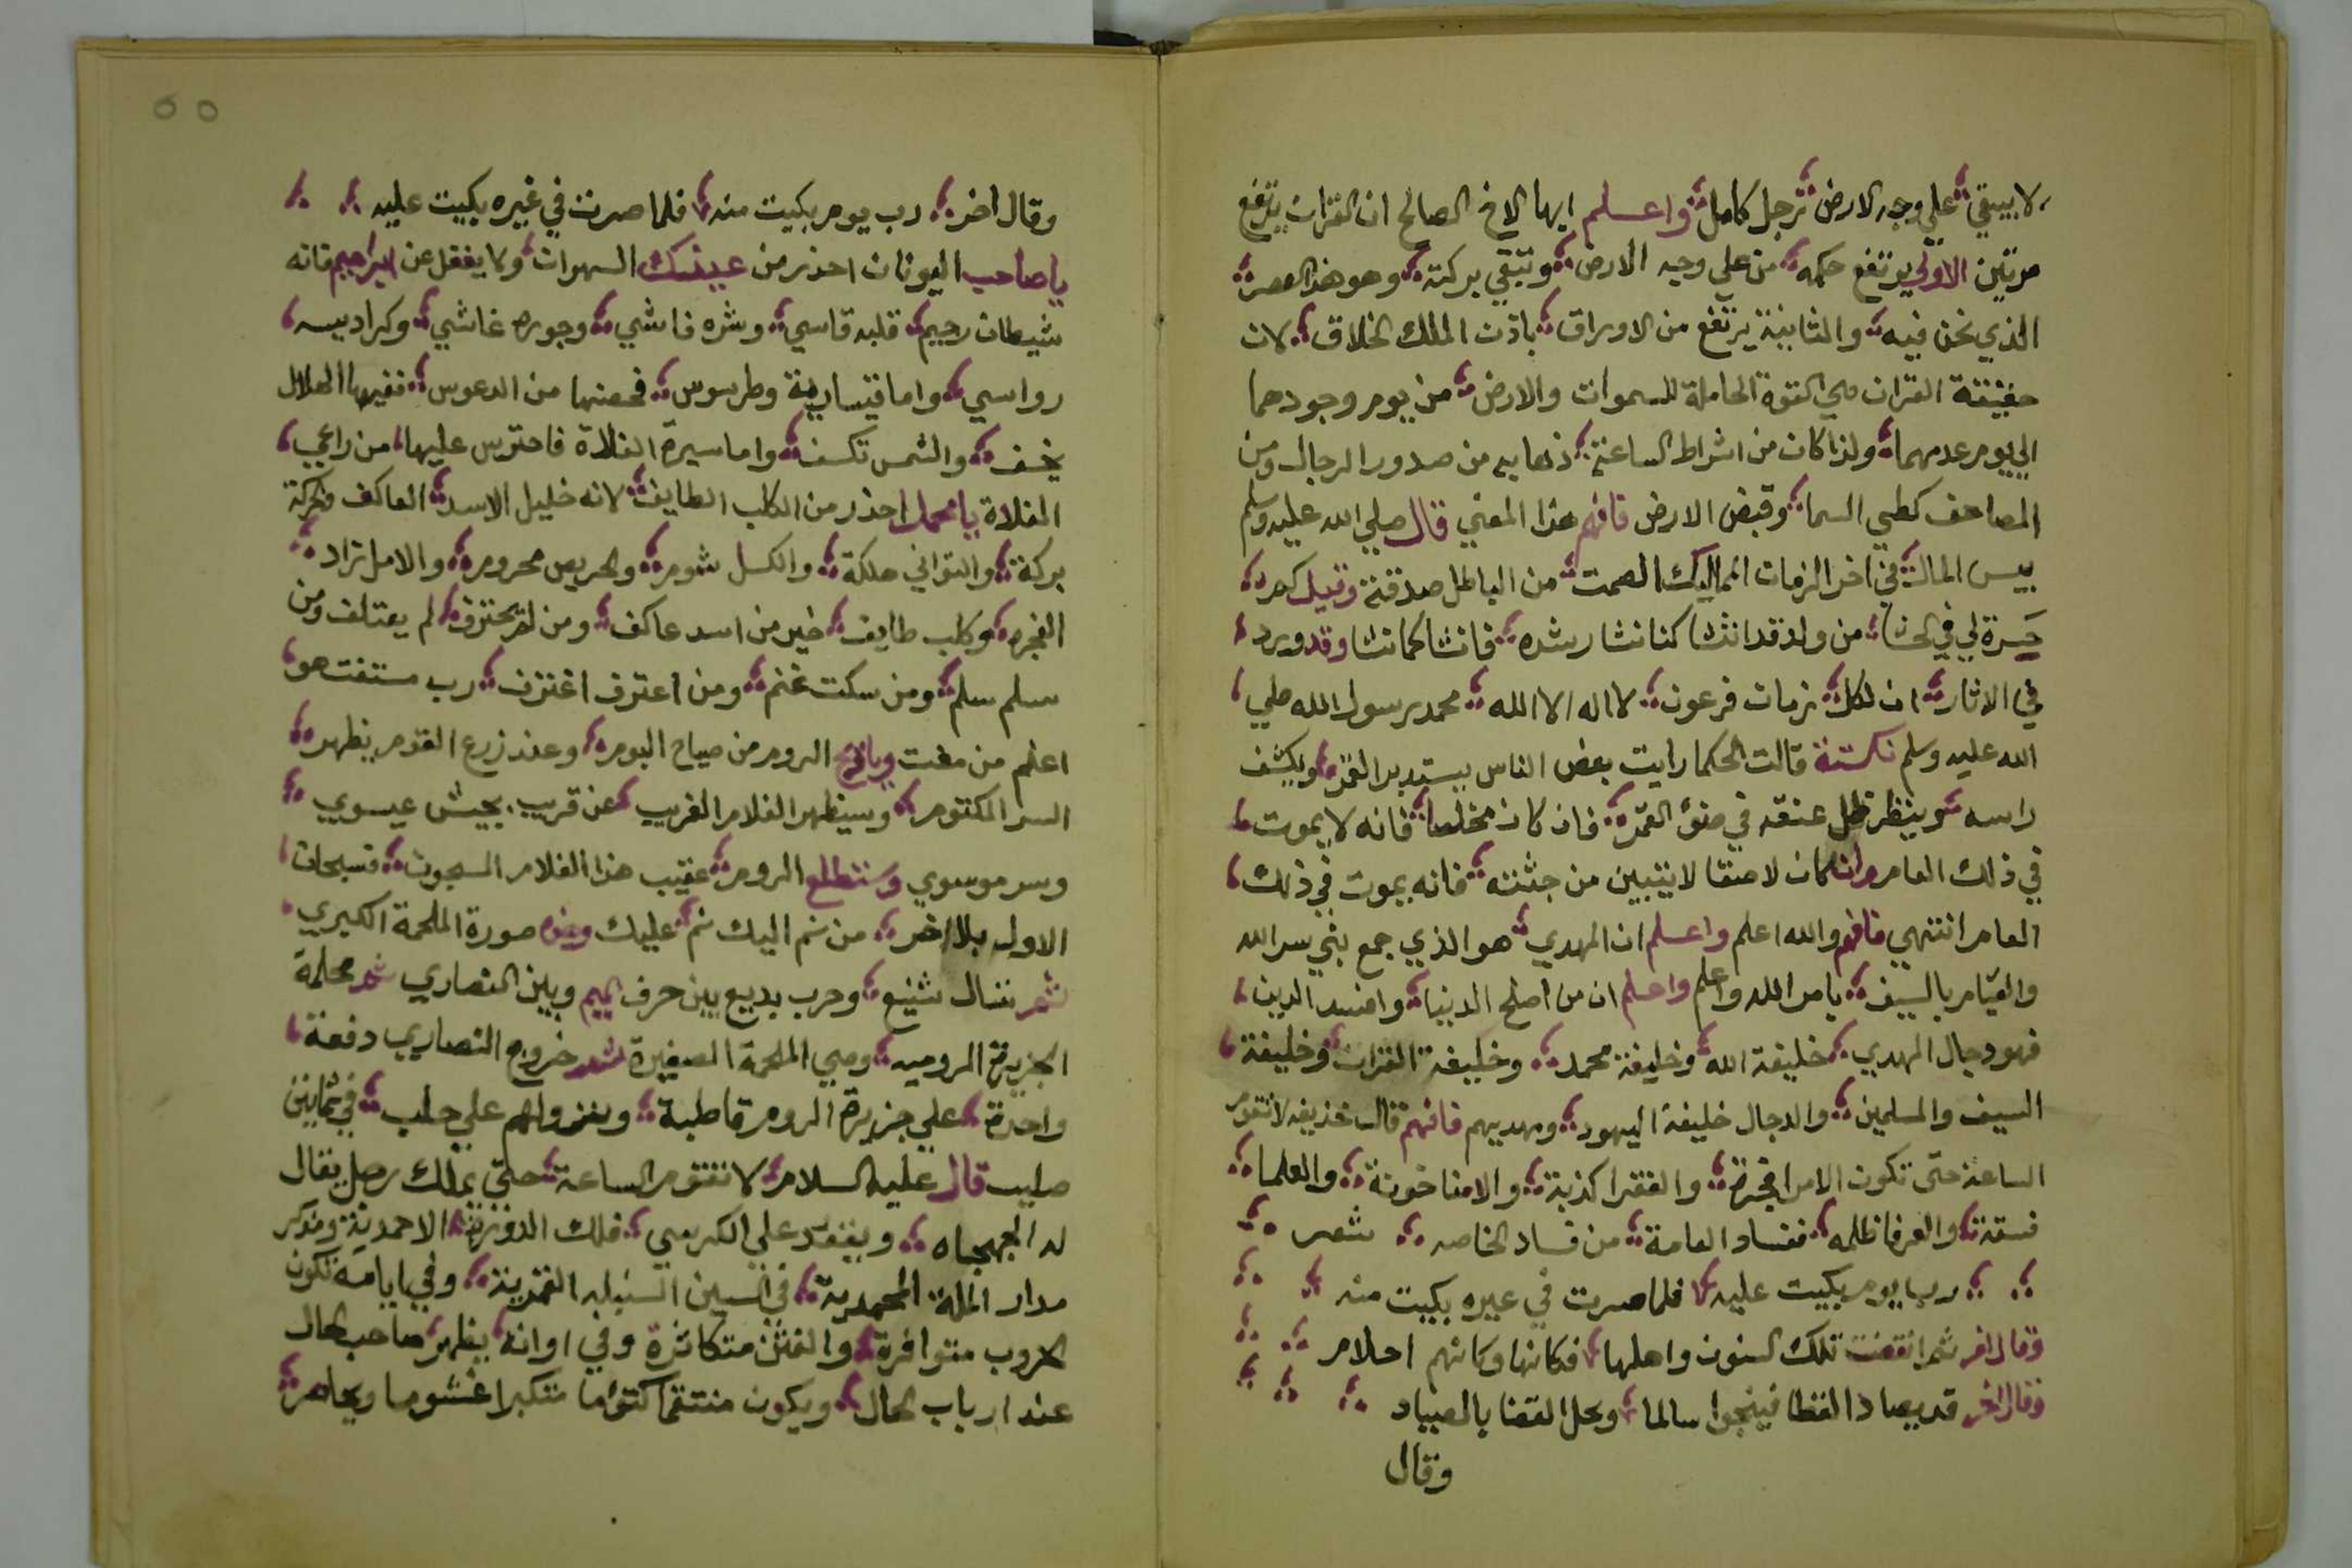 لا يبقي علي وجه الارض رجل كامل واعلم ايها الاخ الصالح ان القران يرتفع
مرتين الاولي يرتفع حكمه من علي وجه الارض وتبقي بركته وهو هذا العصر
الذي نحن فيه والثانية يرتفع من الاوراق باذن الملك الخلاق لان
حقيقة القران هي القوة الحاملة للسموات والارض من يوم وجودهما
الي يوم عدمهما ولذا كان من اشراط الساعة ذهابه من صدور الرجال ومن
المصاحف كطي السما وقبض الارض فافهم هذا المعني قال صلي الله عليه وسلم
بيس المال في اخر الزمان المماليك الصمت من الباطل صدقة وقيل
حسرة لي في الحشا من ولد قد انتشا كنا نشا رشده فانشا كما نشا وقد ورد
في الاثار ان لكل زمان فرعون لا اله الا الله محمد رسول الله صلي
الله عليه وسلم نكتة قالت الحكما رايت بعض الناس يستدبر القمر ويكشف
راسه وينظر ظل عنقه في ضؤ القمر فان كان مخلصا فانه لا يموت
في ذلك العام وان كان لاصقا لا يتبين من جثته فانه يموت في ذلك
العام انتهي فافهم والله اعلم واعلم ان المهدي هو الذي جمع بين سر الله
والقيام بالسيف بامر الله واعلم واعلم ان من اصلح الدنيا وافسد الدين
فهو دجال المهدي خليفة الله وخليفة محمد وخليفة القران وخليفة
السيف والمسلمين والدجال خليفة اليهود ومهديهم فافهم قال حذيفه لا تقوم
الساعة حتى تكون الامرا فجرة والفقرا كذبة والامنا خونة والعلما
فسقة والعرفا ظلمه ففساد العامة من فساد الخاصه شعر
رب يوم بكيت عليه فلما صرت في غيره بكيت منه
وقال اخر ثم انقضت تلك السنون واهلها فكانها وكانهم احلام
وقال اخر قد يصاد القطا فينجوا سالما ويحل القضا بالصياد
وقال
وقال اخر رب يوم بكيت منه فلما صرت في غيره بكيت عليه
يا صاحب اليونان احذر من عينك السهوات ولا يغفل عن ابراهيم فانه
شيطان رجيم قلبه قاسي وشره فاشي وجوره غاشي وكراديسه
رواسي واما قيسارية وطرسوس فحصنها من الدعوس ففيها الهلال
يخسف والشمس تكسف واما سيرة الفلاة فاحترس عليها من راعي
الفلاة يا محمل احذر من الكلب الطايف لانه خليل الاسد العاكف
بركة والتواني هلكة والكسل شوم والحريص محروم والامل تراد
الفجره وكلب طايف خير من اسد عاكف ومن لم يحترف لم يعتلف ومن
سلم سلم ومن سكت غنم ومن اعترف اغترف رب مستفت هو
اعلم من مفت الروم من صياح البوم وعند زرع القدم يظهر
السر المكتوم وسيظهر الغلام الغريب عن قريب بجيش عيسوي
وسر موسوي وستطلع الروم عقيب هذا الغلام المسجون فسبحان
الاول بلا اخر من نم اليك نم عليك وهذه صورة الملحمة الكبري
ثم نتال شنيع وحرب بديع بين حرف الميم وبين النصاري ثم محلمة
الجزيرة الروميه وهي الملحمة الصغيرة ثم خروج النصاري دفعة
واحدة علي جزيرة الروم قاطبة ونزولهم علي حلب في ثمانين
صليب قال عليه السلام لا تقوم الساعة حتي يملك رجل يقال
له الجهجاه ويقعد علي الكرسي فلك الدورة الاحمدية ومركز
مدار الملة المحمدية في السنين السنبله القمرية وفي ايامه تكون
الحروب متوافرة والفتن متكاثرة وفي اوانه يظهر صاحب الحال
عند ارباب الحال ويكون منتقما كتوما متكبرا غشوما